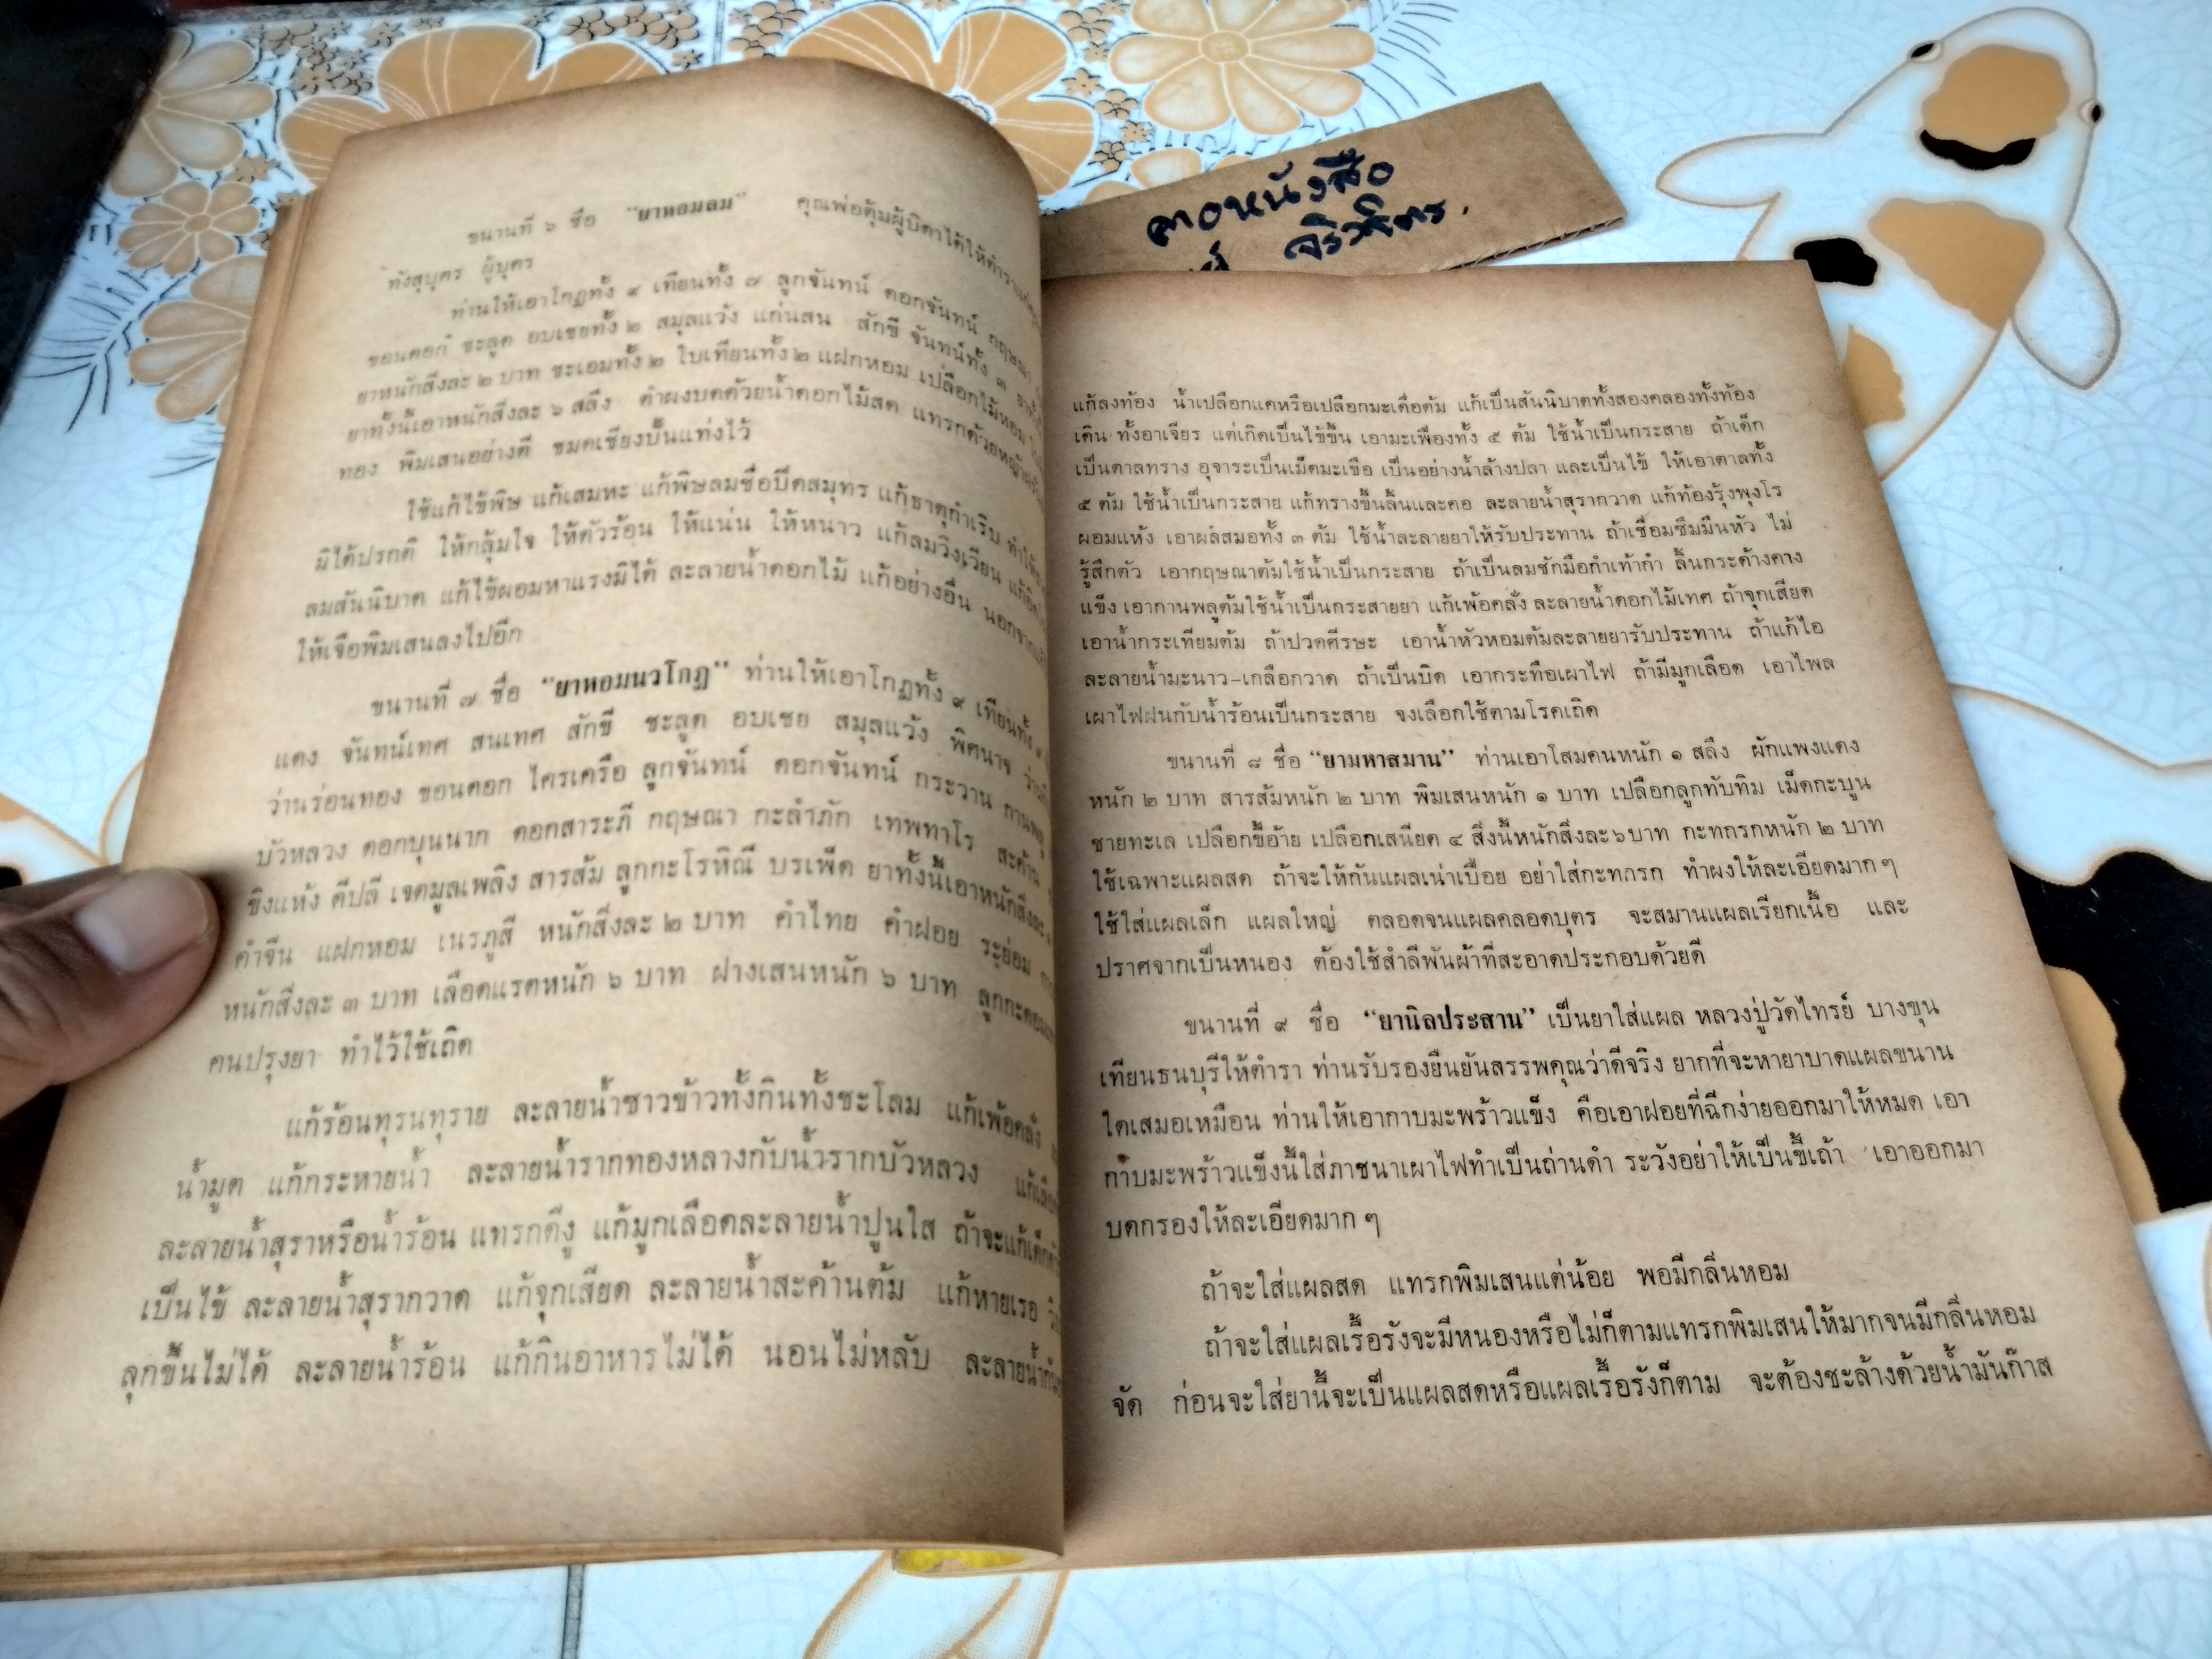 ขนานที่ ๖ ชื่อ “ยาหอมลม” คุณพ่อตุ้มผู้บิดาได้ให้ตำรา
ทังสุบุตร ผู้บุตร
ท่านให้เอาโกฏทั้ง ๙ เทียนทั้ง ๗ ลูกจันทน์ ดอกจันทน์ กฤษณา
ขอนดอก ชะลูด อบเชยทั้ง ๒ สมุลแว้ง แก่นสน สักขี จันทน์ทั้ง ๓
ยาหนักสิ่งละ ๒ บาท ชะเอมทั้ง ๒ ใบเทียนทั้ง ๒ แฝกหอม เปลือกไม้หอม
ยาทั้งนี้เอาหนักสิ่งละ ๖ สลึง ตำผงบดด้วยน้ำดอกไม้สด แทรกด้วยหญ้า
ทอง พิมเสนอย่างดี ชมดเชียงปั้นแท่งไว้
ใช้แก้ไข้พิษ แก้เสมหะ แก้พิษลมชื่อปีตสมุทร แก้ธาตุกำเริบ ทำให้
มิได้ปรกติ ให้กลุ้มใจ ให้ตัวร้อน ให้แน่น ให้หนาว แก้ลมวิงเวียน
ลมสันนิบาต แก้ไข้ผอมหาแรงมิได้ ละลายน้ำดอกไม้ แก้อย่างอื่น
ให้เจือพิมเสนลงไปอีก
ขนานที่ ๗ ชื่อ “ยาหอมนวโกฏ” ท่านให้เอาโกฏทั้ง ๙ เทียนทั้ง
แดง จันทน์เทศ สนเทศ สักขี ชะลูด อบเชย สมุลแว้ง พิศนาจ
ว่านร่อนทอง ขอนดอก ไคร้เครือ ลูกจันทน์ ดอกจันทน์ กระวาน กานพลู
บัวหลวง ดอกบุนนาก ดอกสาระภี กฤษณา กะลำภัก เทพทาโร สะค้าน
ขิงแห้ง ดีปลี เจตมูลเพลิง สารส้ม ลูกกะโรหิณี บรเพ็ด ยาทั้งนี้เอาหนักสิ่งละ
คำจีน แฝกหอม เนรภูสี หนักสิ่งละ ๒ บาท คำไทย คำฝอย ระย่อม
หนักสิ่งละ ๓ บาท เลือดแรดหนัก ๖ บาท ฝางเสนหนัก ๖ บาท
คนปรุงยา ทำไว้ใช้เถิด
แก้ร้อนทุรนทุราย ละลายน้ำซาวข้าวทั้งกินทั้งชะโลม แก้เพ้อคลั่ง
น้ำมูต แก้กระหายน้ำ ละลายน้ำรากทองหลางกับน้ำรากบัวหลวง
ละลายน้ำสุราหรือน้ำร้อน แทรกดีงู แก้มูกเลือดละลายน้ำปูนใส ถ้าจะแก้เด็ก
เป็นไข้ ละลายน้ำสุรากวาด แก้จุกเสียด ละลายน้ำสะค้านต้ม แก้หายเรอ
ลุกขึ้นไม่ได้ ละลายน้ำร้อน แก้กินอาหารไม่ได้ นอนไม่หลับ
คอหนังสือ
แก้ลงท้อง น้ำเปลือกแคหรือเปลือกมะเดื่อต้ม แก้เป็นสันนิบาตทั้งสองคลองทั้งท้อง
เดิน ทั้งอาเจียร แต่เกิดเป็นไข้ขึ้น เอามะเฟืองทั้ง ๕ ต้ม ใช้น้ำเป็นกระสาย ถ้าเด็ก
เป็นตาลทราง อุจาระเป็นเม็ดมะเขือ เป็นอย่างน้ำล้างปลา และเป็นไข้ ให้เอาตาลทั้ง
๕ ต้ม ใช้น้ำเป็นกระสาย แก้ทรางขึ้นลิ้นและคอ ละลายน้ำสุรากวาด แก้ท้องรุ้งพุงโร
ผอมแห้ง เอาผลสมอทั้ง ๓ ต้ม ใช้น้ำละลายยาให้รับประทาน ถ้าเชื่อมซึมมึนหัว ไม่
รู้สึกตัว เอากฤษณาต้มใช้น้ำเป็นกระสาย ถ้าเป็นลมชักมือกำเท้ากำ ลิ้นกระด้างคาง
แข็ง เอากานพลูต้มใช้น้ำเป็นกระสายยา แก้เพ้อคลั่ง ละลายน้ำดอกไม้เทศ ถ้าจุกเสียด
เอาน้ำกระเทียมต้ม ถ้าปวดศีรษะ เอาน้ำหัวหอมต้มละลายยารับประทาน ถ้าแก้ไอ
ละลายน้ำมะนาว-เกลือกวาด ถ้าเป็นบิด เอากระทือเผาไฟ ถ้ามีมูกเลือด เอาไพล
เผาไฟฝนกับน้ำร้อนเป็นกระสาย จงเลือกใช้ตามโรคเถิด
ขนานที่ ๘ ชื่อ “ยามหาสมาน” ท่านเอาโสมคนหนัก ๑ สลึง ผักแพงแดง
หนัก ๒ บาท สารส้มหนัก ๒ บาท พิมเสนหนัก ๑ บาท เปลือกลูกทับทิม เม็ดกะบูน
ชายทะเล เปลือกขี้อ้าย เปลือกเสนียด ๔ สิ่งนี้หนักสิ่งละ ๖ บาท กะทกรกหนัก ๒ บาท
ใช้เฉพาะแผลสด ถ้าจะให้กันแผลเน่าเปื่อย อย่าใส่กะทกรก ทำผงให้ละเอียดมาก ๆ
ใช้ใส่แผลเล็ก แผลใหญ่ ตลอดจนแผลคลอดบุตร จะสมานแผลเรียกเนื้อ และ
ปราศจากเป็นหนอง ต้องใช้สำลีพันผ้าที่สะอาดประกอบด้วยดี
ขนานที่ ๙ ชื่อ “ยานิลประสาน” เป็นยาใส่แผล หลวงปู่วัดไทรย์ บางขุน
เทียนธนบุรีให้ตำรา ท่านรับรองยืนยันสรรพคุณว่าดีจริง ยากที่จะหายาบาดแผลขนาน
ใดเสมอเหมือน ท่านให้เอากาบมะพร้าวแข็ง คือเอาฝอยที่ฉีกง่ายออกมาให้หมด เอา
กาบมะพร้าวแข็งนี้ใส่ภาชนาเผาไฟทำเป็นถ่านดำ ระวังอย่าให้เป็นขี้เถ้า เอาออกมา
บดกรองให้ละเอียดมาก ๆ
ถ้าจะใส่แผลสด แทรกพิมเสนแต่น้อย พอมีกลิ่นหอม
ถ้าจะใส่แผลเรื้อรังจะมีหนองหรือไม่ก็ตามแทรกพิมเสนให้มากจนมีกลิ่นหอม
จัด ก่อนจะใส่ยานี้จะเป็นแผลสดหรือแผลเรื้อรังก็ตาม จะต้องชะล้างด้วยน้ำมันก๊าส